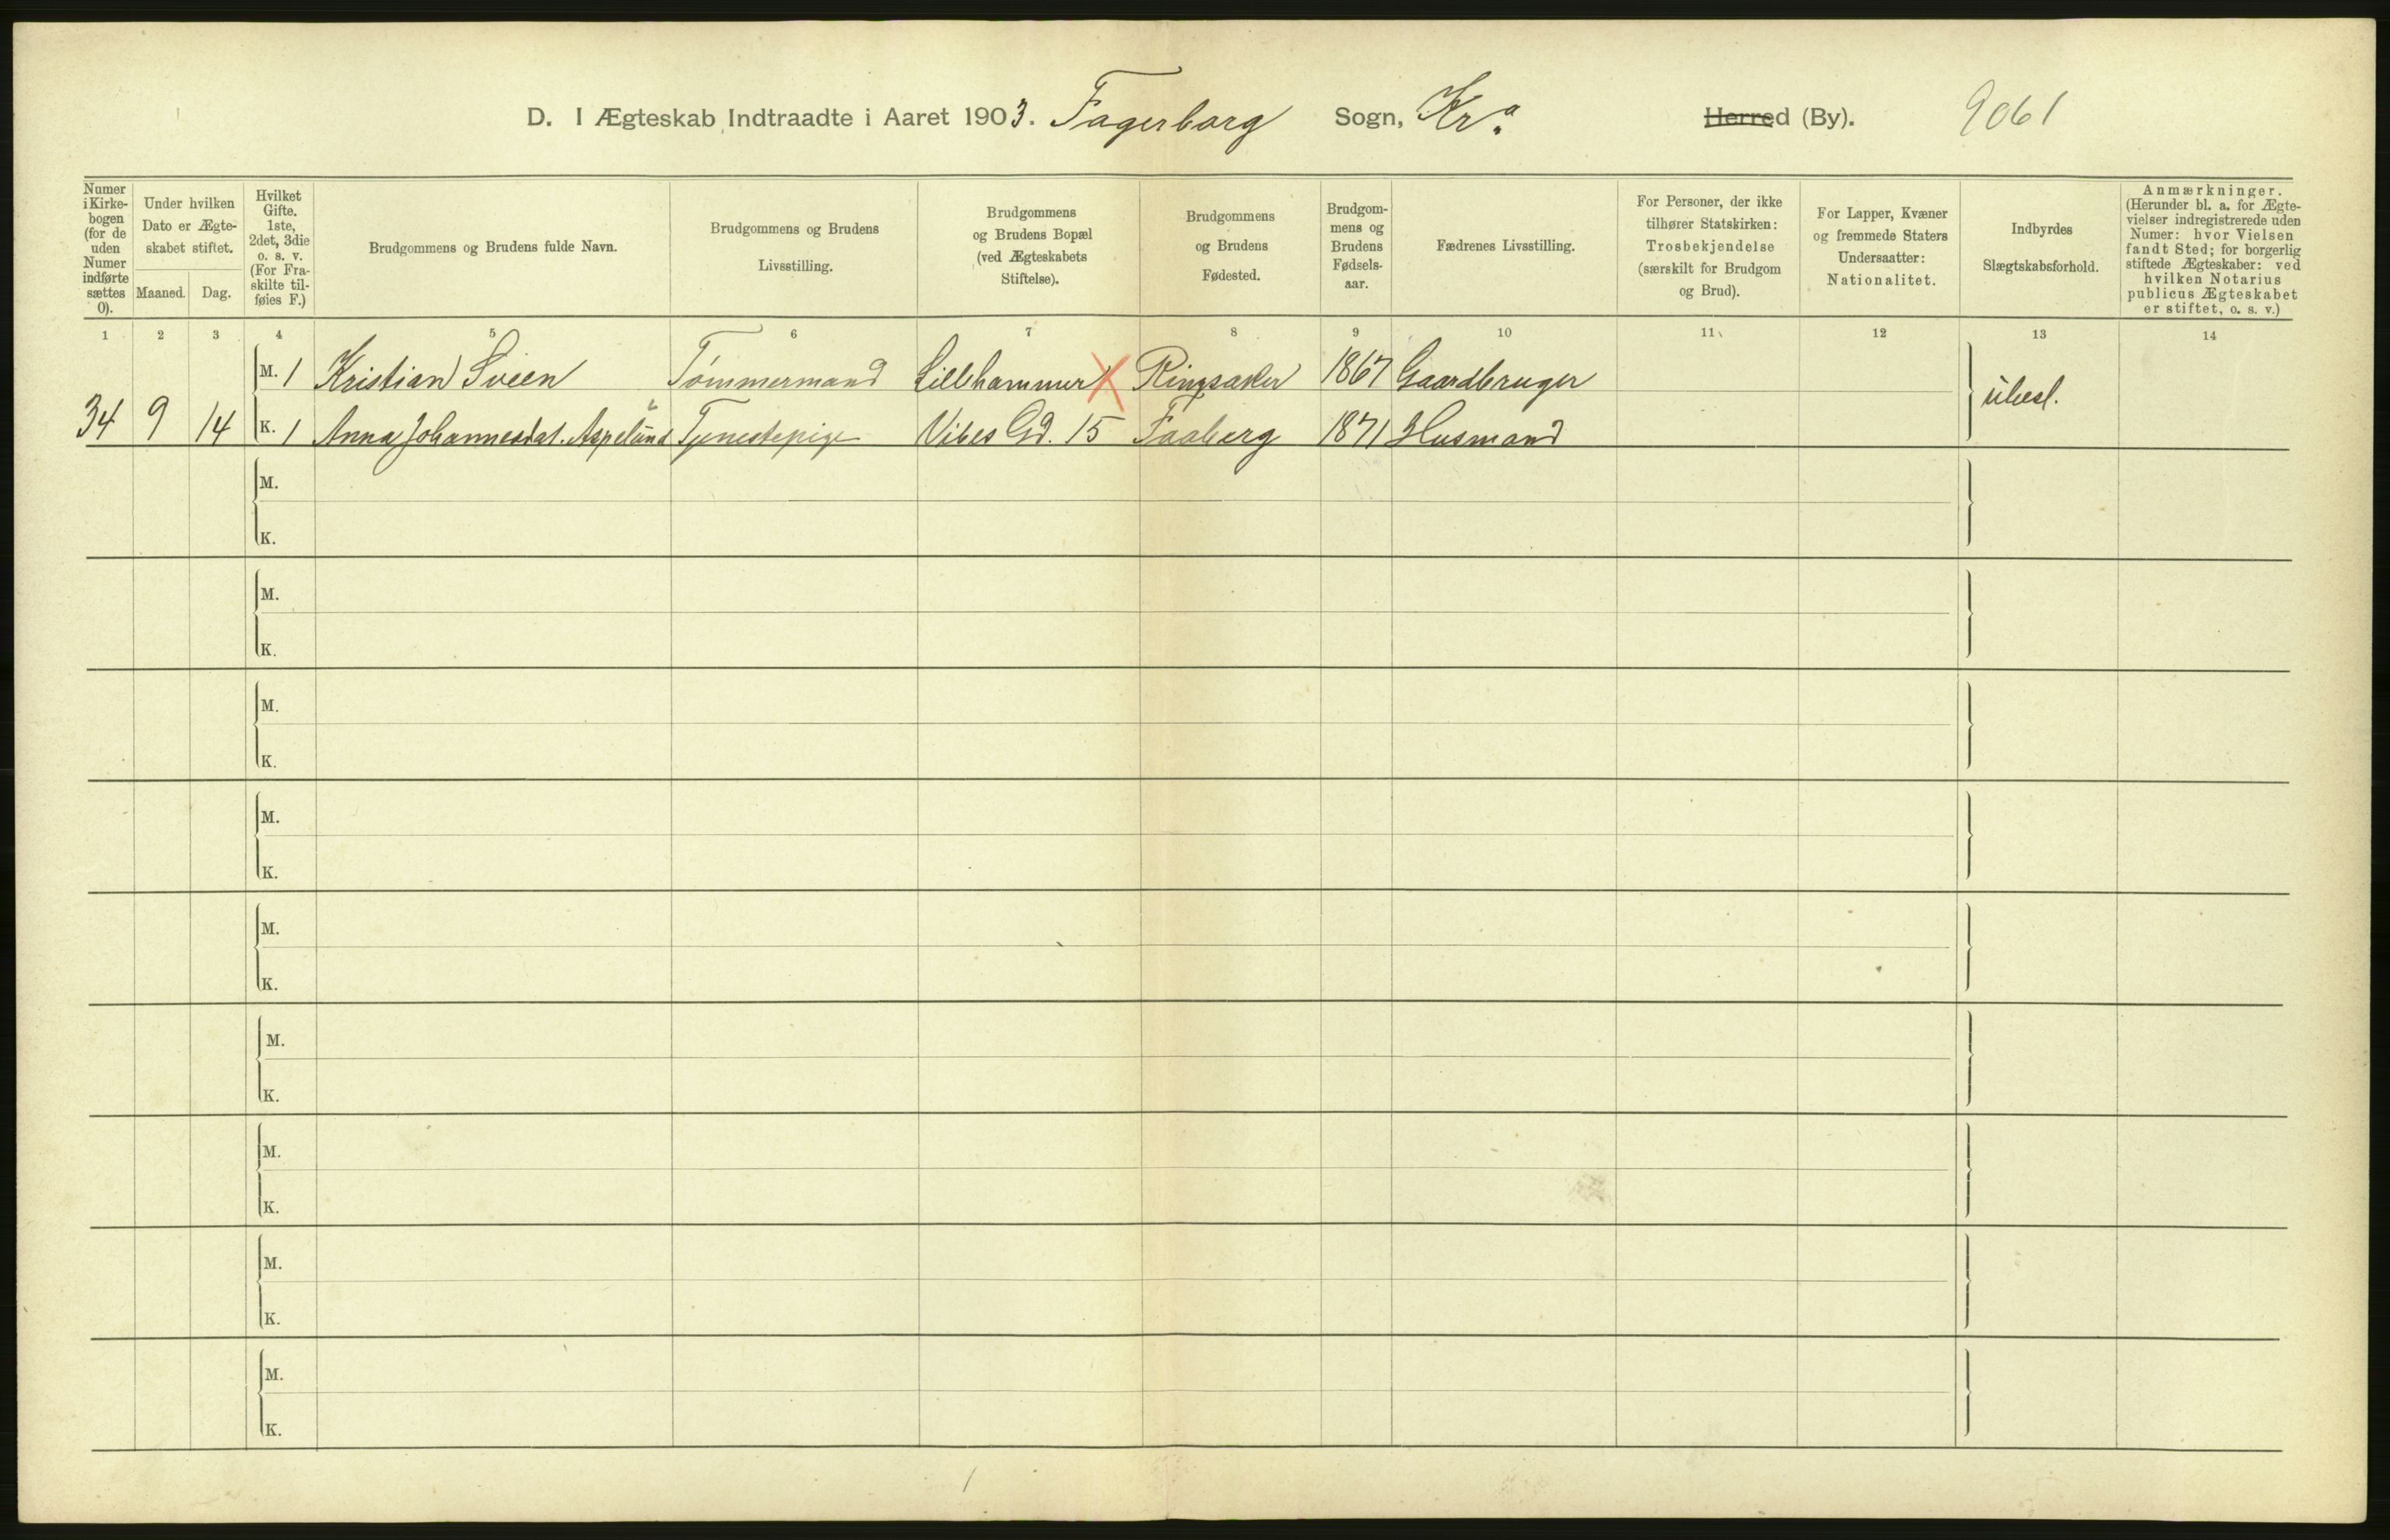 D. I Ægteskab Indtraadte i Aaret 1903. Fagerborg Sogn, Kr.a Herred (By). 9061
Numer i Kirkebogen (for de uden Numer indførte sættes 0).
Under hvilken Dato er Ægteskabet stiftet.
Maaned. Dag.
Hvilket Gifte. 1ste, 2det, 3die o. s. v. (For Fraskilte tilføies F.)
Brudgommens og Brudens fulde Navn.
Brudgommens og Brudens Livsstilling.
Brudgommens og Brudens Bopæl (ved Ægteskabets Stiftelse).
Brudgommens og Brudens Fødested.
Brudgommens og Brudens Fødselsaar.
Fædrenes Livsstilling.
For Personer, der ikke tilhører Statskirken: Trosbekjendelse (særskilt for Brudgom og Brud).
For Lapper, Kvæner og fremmede Staters Undersaatter: Nationalitet.
Indbyrdes Slægtskabsforhold.
Anmærkninger. (Herunder bl. a. for Ægtevielser indregistrerede uden Numer: hvor Vielsen fandt Sted; for borgerlig stiftede Ægteskaber: ved hvilken Notarius publicus Ægteskabet er stiftet, o. s. v.)
1 2 3 4 5 6 7 8 9 10 11 12 13 14
M. 1 Kristian Sveen Tømmermand Lillehammer X Ringsaker 1867 Gaardbruger
ubesl.
34 9 14 K. 1 Anna Johannesdat. Aspelund Tjenestepige Vibes Gd. 15 Faaberg 1871 Husmand
M.
K.
M.
K.
M.
K.
M.
K.
M.
K.
M.
K.
M.
K.
M.
K.
M.
K.